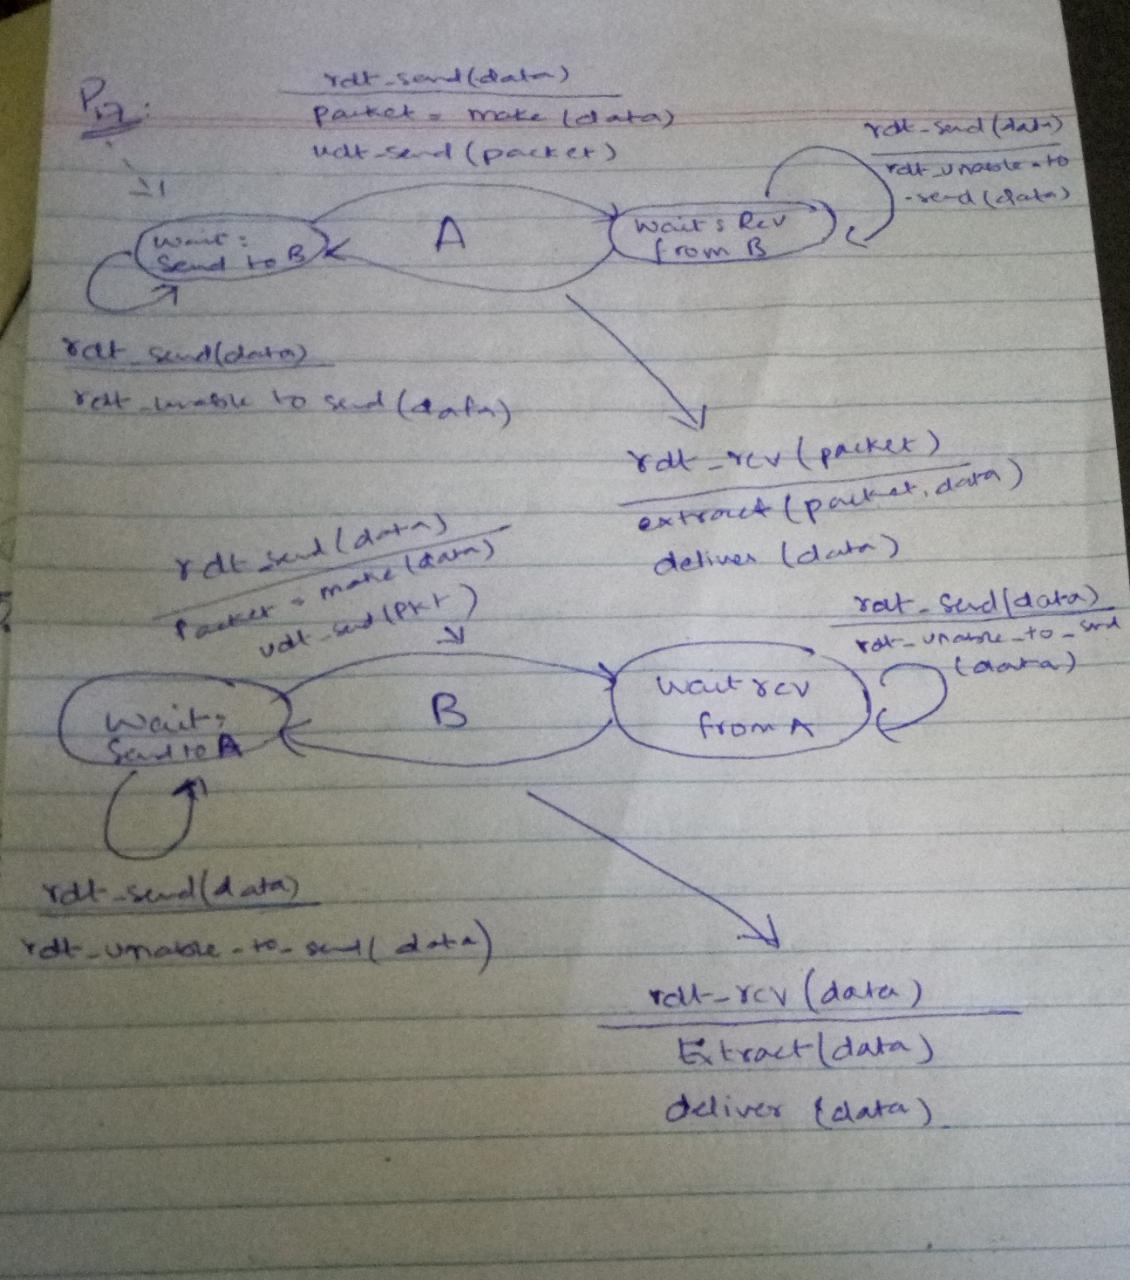 P17:
rdt_send(data)
packet = make (data)
udt_send (packet)
rdt_send (data)
rdt_unable_to
-send (data)
wait:
Send to B
A
Wait: Rcv
from B
rdt_send(data)
rdt_unable to send (data)
rdt_rcv (packet)
extract (packet, data)
deliver (data)
rdt_send (data)
Packet = make (data)
udt_send (Pkt)
rdt_send(data)
rdt_unable_to_send
(data)
Wait:
Send to A
B
Wait rcv
from A
rdt_send(data)
rdt_unable_to_send( data)
rdt_rcv (data)
Extract (data)
deliver (data)